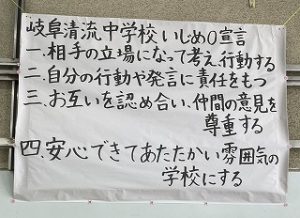 岐阜清流中学校 いじめ0宣言
一.相手の立場になって考え行動する
二.自分の行動や発言に責任をもつ
三.お互いを認め合い.仲間の意見を
尊重する
四.安心できてあたたかい雰囲気の
学校にする